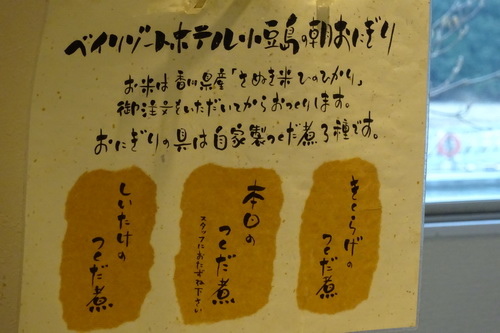 ベイリゾートホテル小豆島の朝おにぎり
お米は香川県産「さぬき米ひのひかり」
御注文をいただいてからおつくりします。
おにぎりの具は自家製つくだ煮3種です。
きくらげの
つくだ煮
本日の
つくだ煮
スタッフにおたずね下さい
しいたけの
つくだ煮